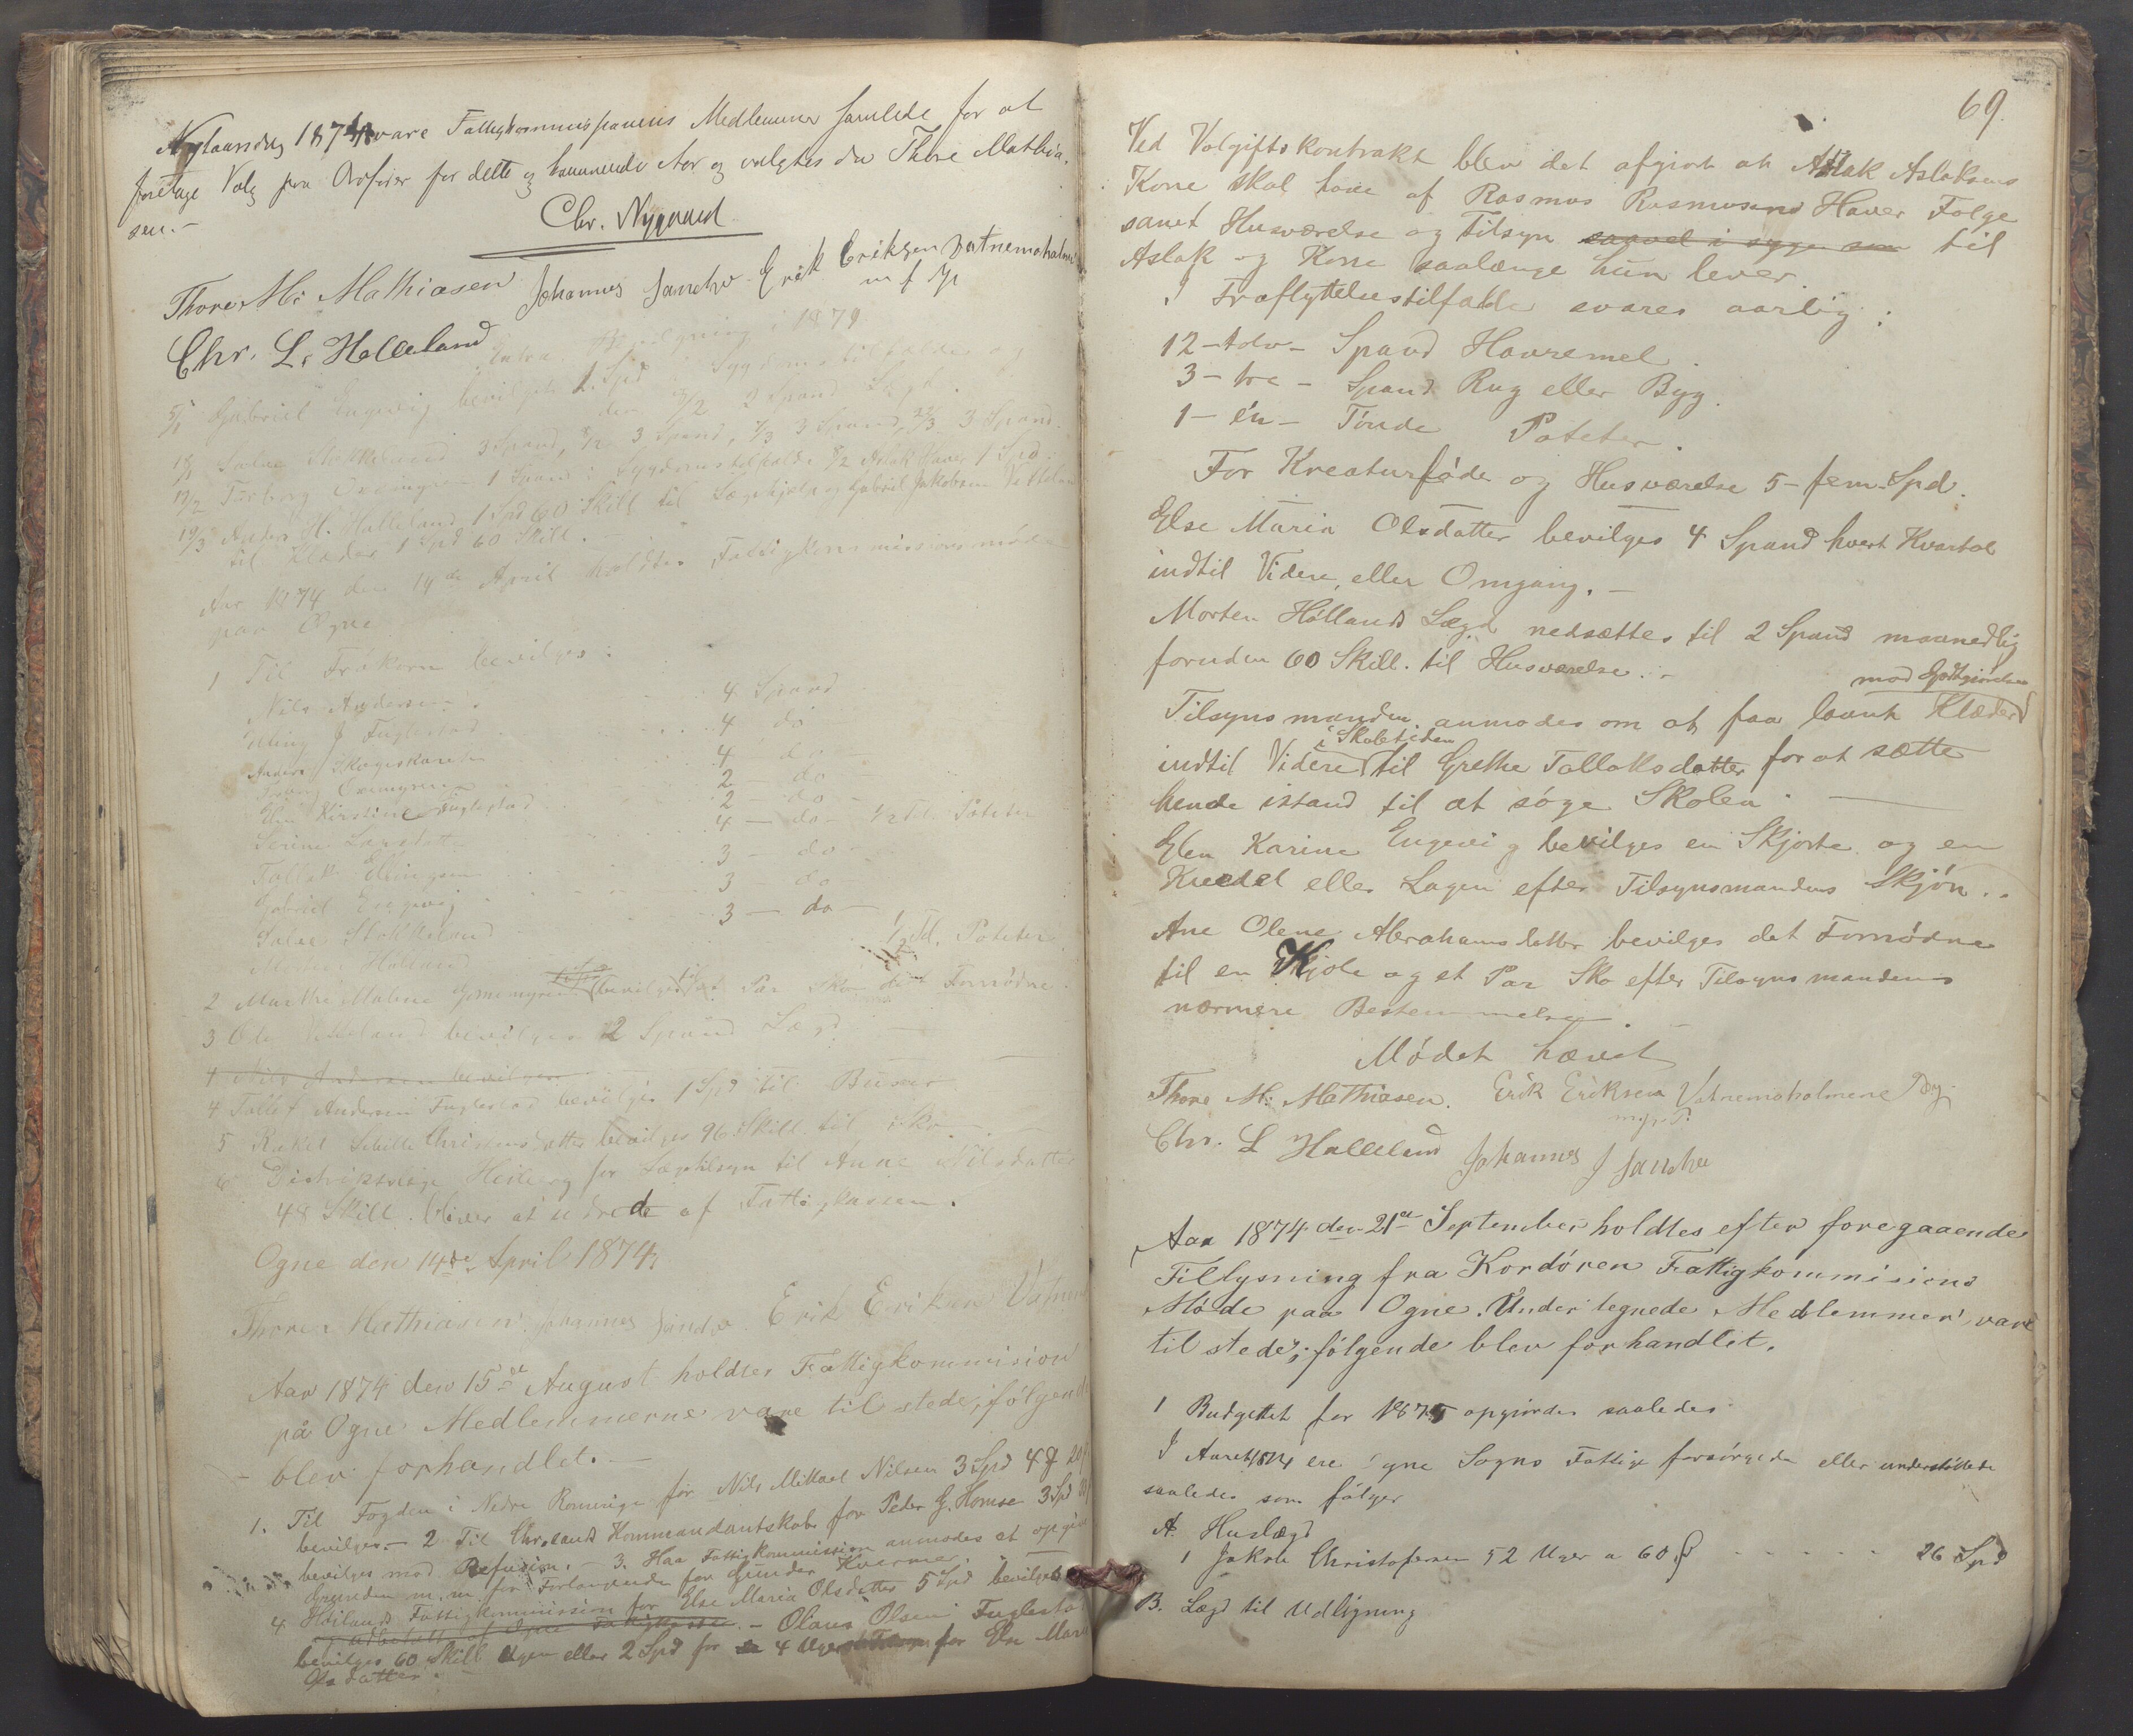 Nytaarsdag 1874 vare Fattigkommissionens Medlemmer samlede for at
foretage Valg paa Ordfører for dette og kommende Aar og valgtes da Thore Mathia-
sen.-
Chr. Nygaard
Thore M: Mathiasen Johannes J Sandve Erik Eriksen Vatnemoholmene
m f P
Chr. L. Helleland
Extra Bevilgning i 1874
5/1 Gabriel Engevig bevilget 1 Spd Sygdomstilfælde og
den 3/2 2 Spand Lægd.
Salve Stokkeland 3 Spand, 3 Spand, 3 Spand, 3 Spand.
Torborg Oxemyren 1 Spand i Sygdomstilfælde Aslak Haver 1 Spd.
19/3 Anders H. Halleland 1 Spd 60 Skill til Lægehjælp og Gabriel Jakobsen Vetteland
til Klæder 1 Spd 60 Skill. -
Aar 1874 den 14de April holdtes Fattigkommissionsmøde
paa Ogne
1 Til Frøkorn bevilges:
Nils Andersen 4 Spand
Elling J Fuglestad 4 do
Anders Skogeskaret 4 do
Torborg Oxemyren 2 do
Elen Kirstine Fuglestad 2 - do -
Serine Larsdatter 4 - do - 1/2 Td. Poteter
Tallak Ellingsen 3 - do -
Gabriel Engevig 3 do
Salve Stokkeland 3 - do -
Morten Hølland 1/2 Td. Poteter
2 Marthe Malene bevilges til et Par Sko det Fornødne.
3 Ole bevilges 2 Spand Lægd.
4 Nils Andersen bevilges
4 Tollef Andersen Fuglestad bevilges 1 Spd til Buxer
5 Rakel Sebille Christensdatter bevilges 96 Skill til Sko. -
6 Distriktslæge Heiberg for Lægetilsyn til Anne Nilsdatter
48 Skill. bliver at udrede af Fattigkassen.
Ogne den 14de April 1874.
Thore Mathiasen Johannes Sandve Erik Eriksen Vatnem
Aar 1874 den 15de August holdtes Fattigkommision
på Ogne Medlemmerne vare til stede; følgende
- blev forhandlet. -
1. Til Fogden i Nedre Romerige for Nils Mikael Nilsen 3 Spd 4
bevilges. - 2 Til Chr.sands Kommandantskab for Peder G. Homse 3 Spd
bevilges mod Refusion. - 3. Haa Fattigkommission anmodes at opgive
Grunden m. m. for Forlangende for Gunder Kvermo.
4 Høilands Fattigkommission for Else Maria Olsdatter 5 Spd bevilges
og udbetalt af Ogne Fattigkasse. - Olaus Olsen Fuglestad
bevilges 60 Skill Ugen eller 2 Spd for 4 Uger for Else Maria
Olsdatter.
69.
Ved Volgiftskontrakt blev det afgiort at Aslak Aslaksens
Kone skal have af Rasmus Rasmusens Haver Følge
samt Husværelse og Tilsyn saavel i syge som til
Aslak og Kone saalænge hun lever.
I Fraflyttelsestilfælde svares aarlig:
12 - tolv - Spand Havremel.
3 - tre - Spand Rug eller Byg.
1 - én - Tönde Poteter.
For Kreaturføde og Husværelse 5 - fem - Spd.
Else Maria Olsdatter bevilges 4 Spand hvert Kvartal
indtil Videre, eller Omgang. -
Morten Höllands Lægd nedsættes til 2 Spand maanedlig
foruden 60 Skill. til Husværelse. -
mod Godtgjørelse
Tilsynsmanden anmodes om at faa laant Klæder
i Skoletiden
indtil Videre til Grethe Tallaksdatter for at sætte
hende istand til at søge Skolen. -
Elen Karine Engevig bevilges en Skjorte og en
Kuedel eller Lagen efter Tilsynsmandens Skjön. .
Ane Olene Abrahamsdatter bevilges det Fornödne
til en Kjole og et Par Sko efter Tilsynsmandens
nærmere Bestemmelse. -
Mødet hævet
Thore M: Mathiasen. Erik Eriksen Vatnemoholmene
m. f. P.
Chr. L Halleland Johannes J Sandve
Aar 1874 den 21de September holdtes efter foregaaende
Tillysning fra Kordören Fattigkommisions
Møde paa Ogne. Undertegnede Medlemmer vare
til stede; følgende blev forhandlet.
1 Budgettet for 1875 opgiordes saaledes
I Aaret 1874 ere Ogne Sogns Fattige forsörgede eller understöttede
saaledes som følger
A. Huslægd
1 Jakob Christofersen 52 Uger a 60 ß - - - - - 26 Spd
B. Lægd til Udligning